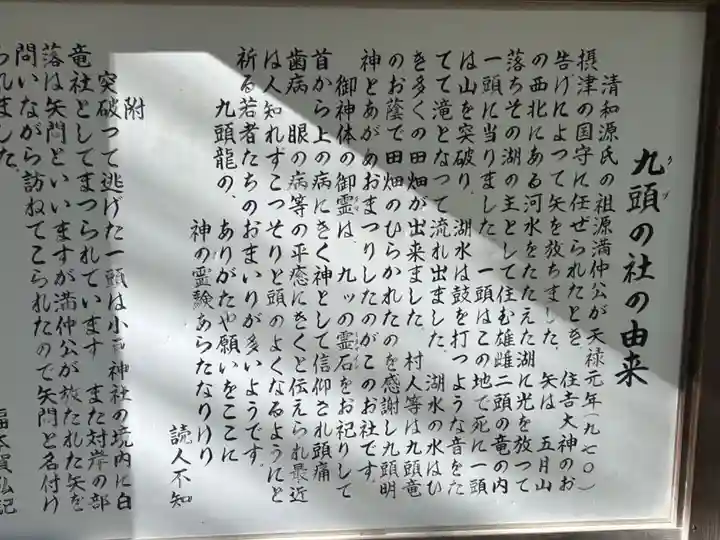 九頭の社の由来
クズ
清和源氏の祖源満仲公が天禄元年(九七〇)
摂津の国守に任ぜられたとき 住吉大神のお
告げによつて矢を放ちました 矢は 五月山
の西北にある河水をたたえた湖に光を放つて
落ちその湖の主として住む雄雌二頭の竜の内
一頭に当りました 一頭はこの地で死に一頭
は山を突破り 湖水は鼓を打つような音をた
てて滝となつて流れ出ました 湖水の水はひ
き多くの田畑が出来ました 村人等は九頭竜
のお蔭で田畑のひらかれたのを感謝し九頭明
神とあがめおまつりしたのがこのお社です
御神体の御霊は 九ッの霊石をお祀りして
首から上の病にきく神として信仰され頭痛
歯病 眼の病等の平癒にきくと伝えられ最近
は人知れずこつそりと頭のよくなるようにと
祈る若者たちのおまいりが多いようです
九頭龍の、ありがたや願いをここに
神の霊験あらたなりけり
読人不知
附
突破つて逃げた一頭は小戸神社の境内に白
竜社としてまつられています また対岸の部
落は矢問といいますが満仲公が放たれた矢を
問いながら訪ねてこられたので矢問と名付け
られました
福本賀弘記